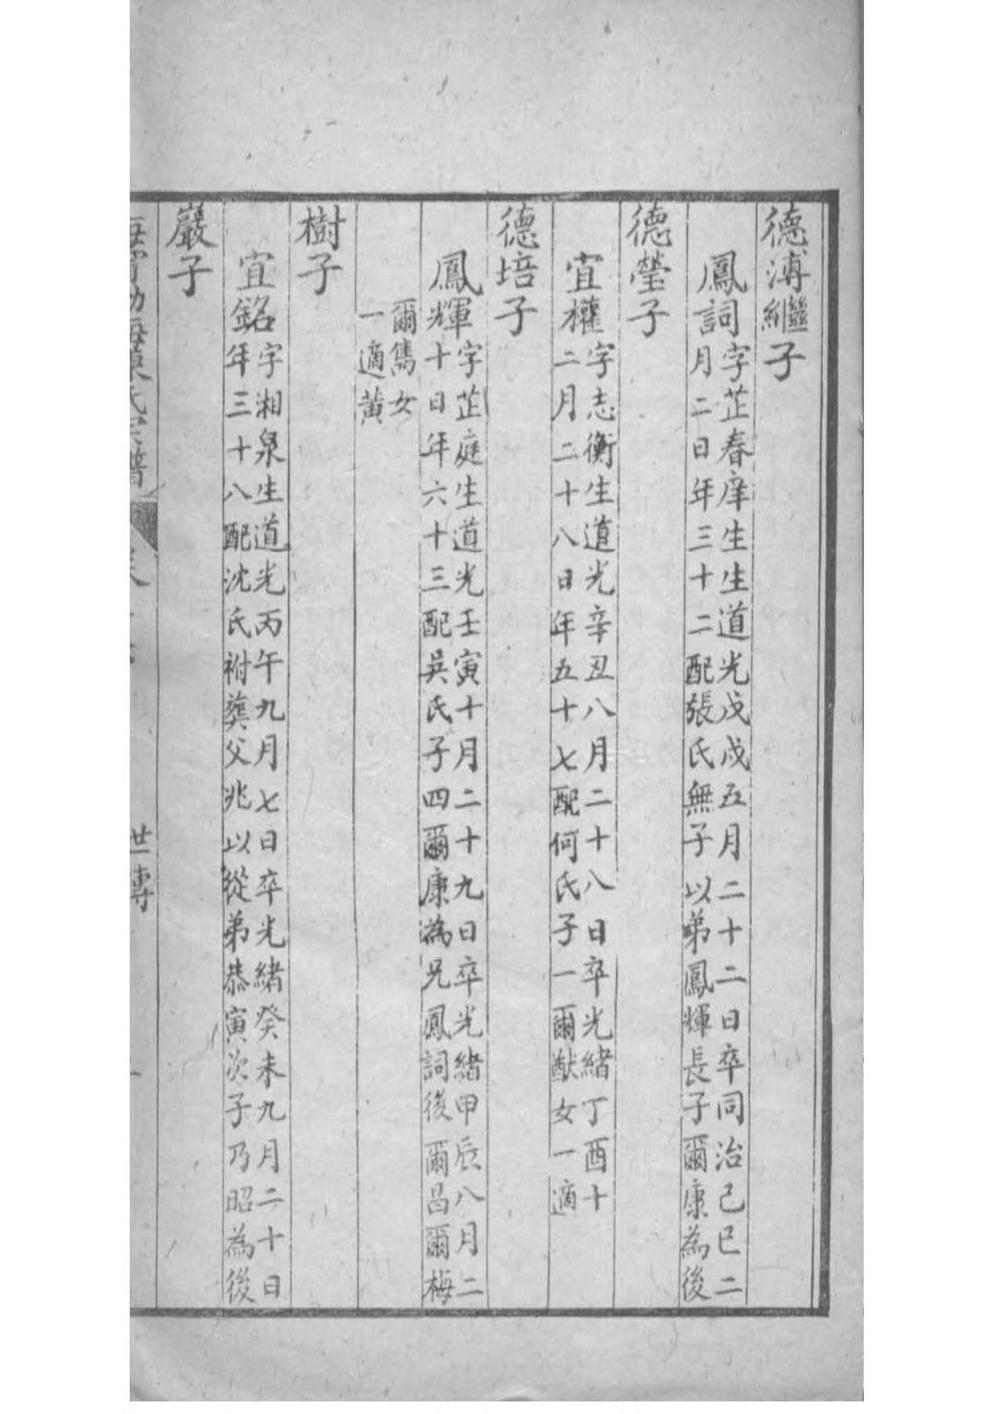 德溥繼子
鳳詞字芷春庠生生道光戊戌五月二十二日卒同治己巳二
月二日年三十二配張氏無子以弟鳳輝長子爾康為後
德瑩子
宜權字志衡生道光辛丑八月二十八日卒光緒丁酉十
二月二十八日年五十七配何氏子一爾猷女一適
德培子
鳳輝字芷庭生道光壬寅十月二十九日卒光緒甲辰八月二
十日年六十三配吳氏子四爾康為兄鳳詞後爾昌爾梅
爾雋女
一適黃
樹子
宜銘字湘泉生道光丙午九月七日卒光緒癸未九月二十日
年三十八配沈氏祔葬父兆以從弟恭寅次子乃昭為後
巖子
世傳